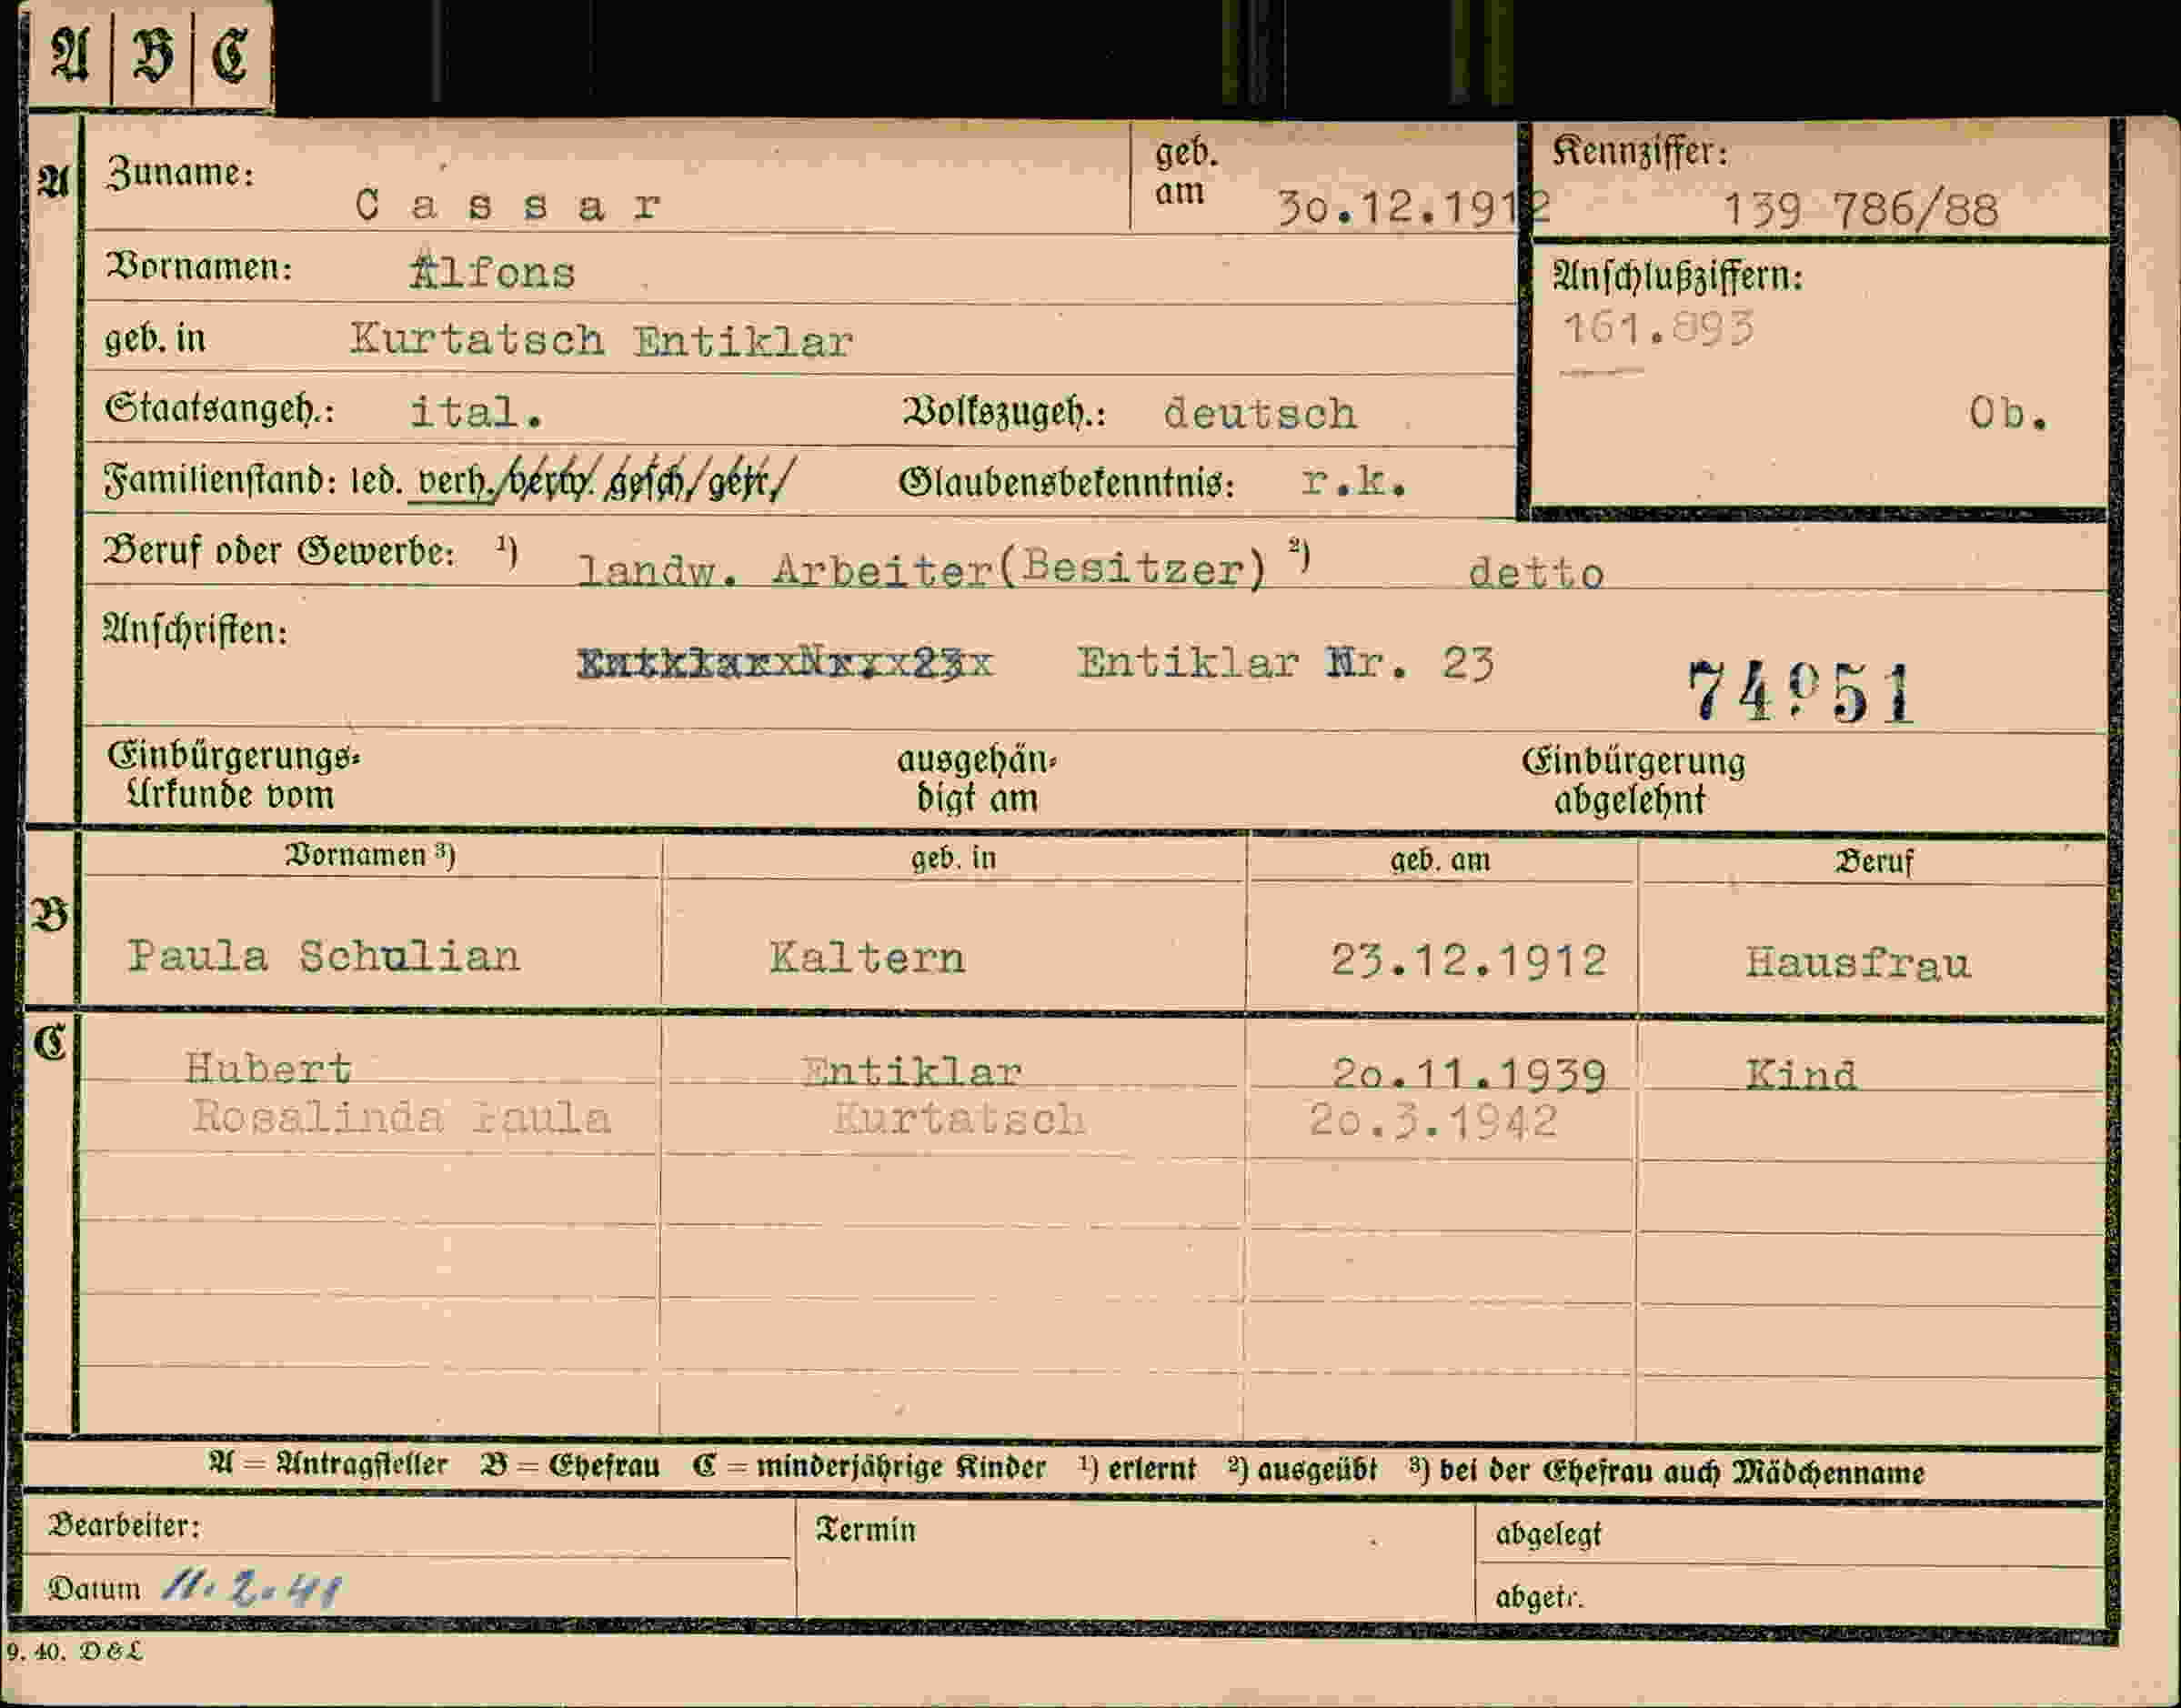 A B C
A Zuname: Cassar geb. am 30.12.1912 Kennziffer: 139 786/88
Vornamen: Alfons Anschlußziffern:
161.893
geb. in Kurtatsch Entiklar
Staatsangeh.: ital. Volkszugeh.: deutsch Ob.
Familienstand: led. verh. verw. gesch. getr. Glaubensbekenntnis: r.k.
Beruf oder Gewerbe: ¹) landw. Arbeiter(Besitzer) ²) detto
Anschriften: Entiklar Nr. 23 74951
Einbürgerungs- ausgehän- Einbürgerung
Urkunde vom digt am abgelehnt
Vornamen ³) geb. in geb. am Beruf
B Paula Schulian Kaltern 23.12.1912 Hausfrau
C Hubert Entiklar 20.11.1939 Kind
Rosalinda Paula Kurtatsch 20.3.1942
A = Antragsteller B = Ehefrau C = minderjährige Kinder ¹) erlernt ²) ausgeübt ³) bei der Ehefrau auch Mädchenname
Bearbeiter: Termin abgelegt
Datum 11.2.41 abgetr.
9. 40. D&L